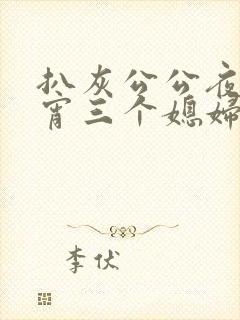 扒灰公公夜
宵三个媳婦
李伏